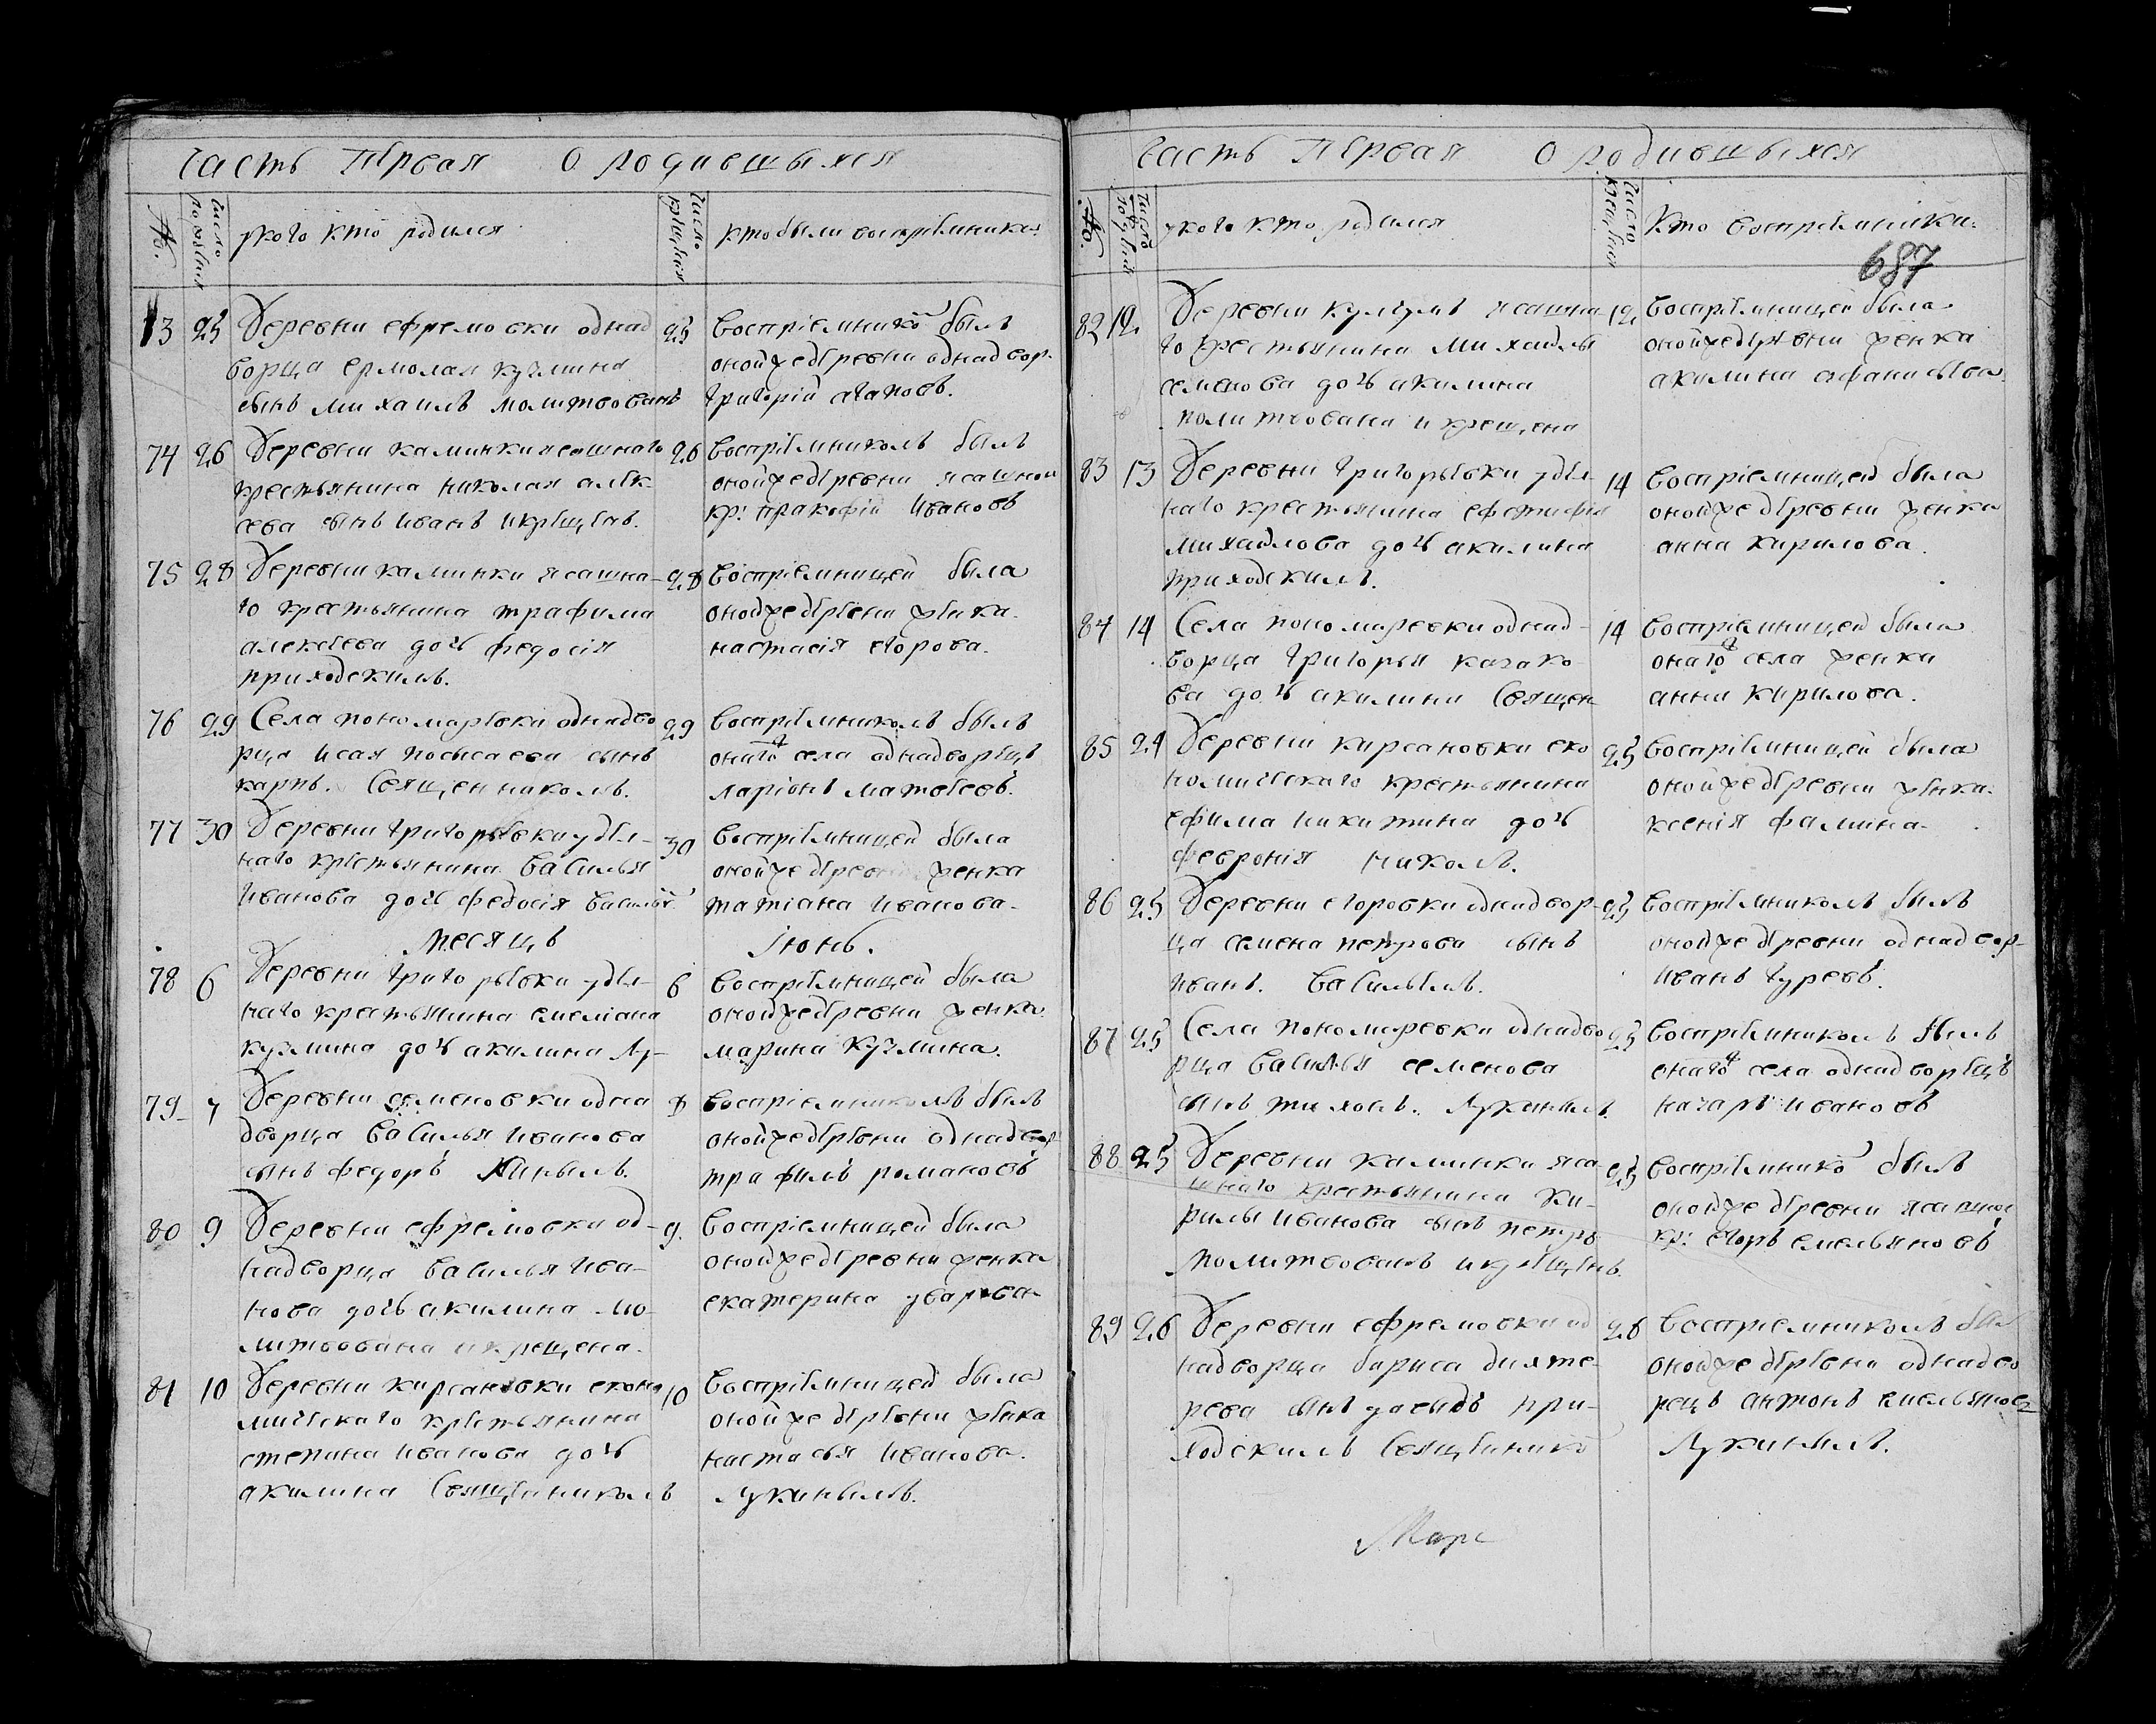 Часть Первая О родившыхся
№.
число рождѣния
у кого кто родился
число крещѣния
кто были восприѣмники
73 25 Деревни ефремовки однад
ворца ермолая кузмина
сынъ михаилъ молитвованъ
25 Восприемнико былъ
оной же дѣревни однадвор.
григорий агаповъ.
74 26 Деревни калинки ясашнаго
крестьянина николая алек-
сева сынъ иванъ и крещенъ.
26 Восприемникомъ былъ
оной же дѣревни ясашной
кр: пракофій Ивановъ
75 28 Деревни калинки ясашна-
го крестьянина трафима
алексеева дочь федосія
приходскимъ.
28 Восприемницей была
оной же деревни женка
настасія егорова.
76 29 Села пономаревки однадво
рца Исая сынъ
карпъ. Священникомъ.
29 Восприемникомъ былъ
онаго ж села однадворецъ
ларіонъ матвеевъ.
77 30 Деревни григорьевки удел-
наго крестьянина Василья
Иванова дочь федосія Васильѣ
30 Восприемницей была
оной же деревни женка
татіана Иванова.
месяцъ Іюнь.
78 6 Деревни григорьевки удел-
наго крестьянина емеліана
кузмина дочь акилина Лу-
6 Восприемницей была
оной же деревни женка
марина Кузмина.
79 7 Деревни семеновки одна
дворца Василья Иванова
сынъ федоръ Кинымъ.
8 Восприемникомъ былъ
оной же деревни однадвор
трафимъ романовъ
80 9 Деревни ефремовки од-
надворца Василья Ива-
нова дочь акилина мо-
литвована и крещена.
9. Восприемницей была
оной же деревни женка
екатерина уварова
81 10 Деревни кирсановки еконо
мическаго крестьянина
степана Иванова дочь
акилина Священникомъ
10 Восприемницей была
оной же деревни женка
настасья Иванова.
Лукинымъ.
Часть Первая О родившыхся
№.
число рождения
у кого кто родился
число крещения
Кто восприемники.
687
82 12. Деревни ясашна
го крестьянина михайлы
семенова дочь акилина
молитвована и крещена
12. Восприемницей была
оной же деревни женка
акилина афанасьева
83 13 Деревни Григорьевки удел-
наго крестьянина ефстифия
михайлова дочь акилина
приходскимъ.
14 Восприемницей была
оной же деревни женка
анна кирилова.
84 14 Села пономаревки однад-
ворца григорья казако-
ва дочь акилина Священ-
14 Восприемницей была
онаго ж села женка
анна Кирилова.
85 24 Деревни кирсановки еко
номическаго крестьянина
ефима никитина дочь
феврония никол.
25 Восприемницей была
оной же деревни женка.
ксенія фамина.
86 25 Деревни егоровки однадвор-
ца семена петрова сынъ
иванъ. Васильемъ.
25 Восприемникомъ былъ
оной же деревни однадвор-
иванъ гуревъ.
87 25 Села пономаревки однадво
рца Василья семенова
сынъ тихонъ. Лукинымъ.
25 Восприемникомъ былъ
онаго ж села однадворецъ
назаръ ивановъ
88 25 Деревни калинки яса
шнаго крестьянина ки-
рилы иванова сынъ петръ
молитвованъ и крещенъ.
25 Восприемнико былъ
оной же деревни ясашной
кр: егоръ емельяновъ
89 26 Деревни ефремовки од
надворца бориса дихте-
рева сынъ давыдъ при-
ходскимъ Священнико
26 Восприемникомъ был
оной же деревни однадво
рецъ антонъ емельяновъ
Лукинымъ.
Марс